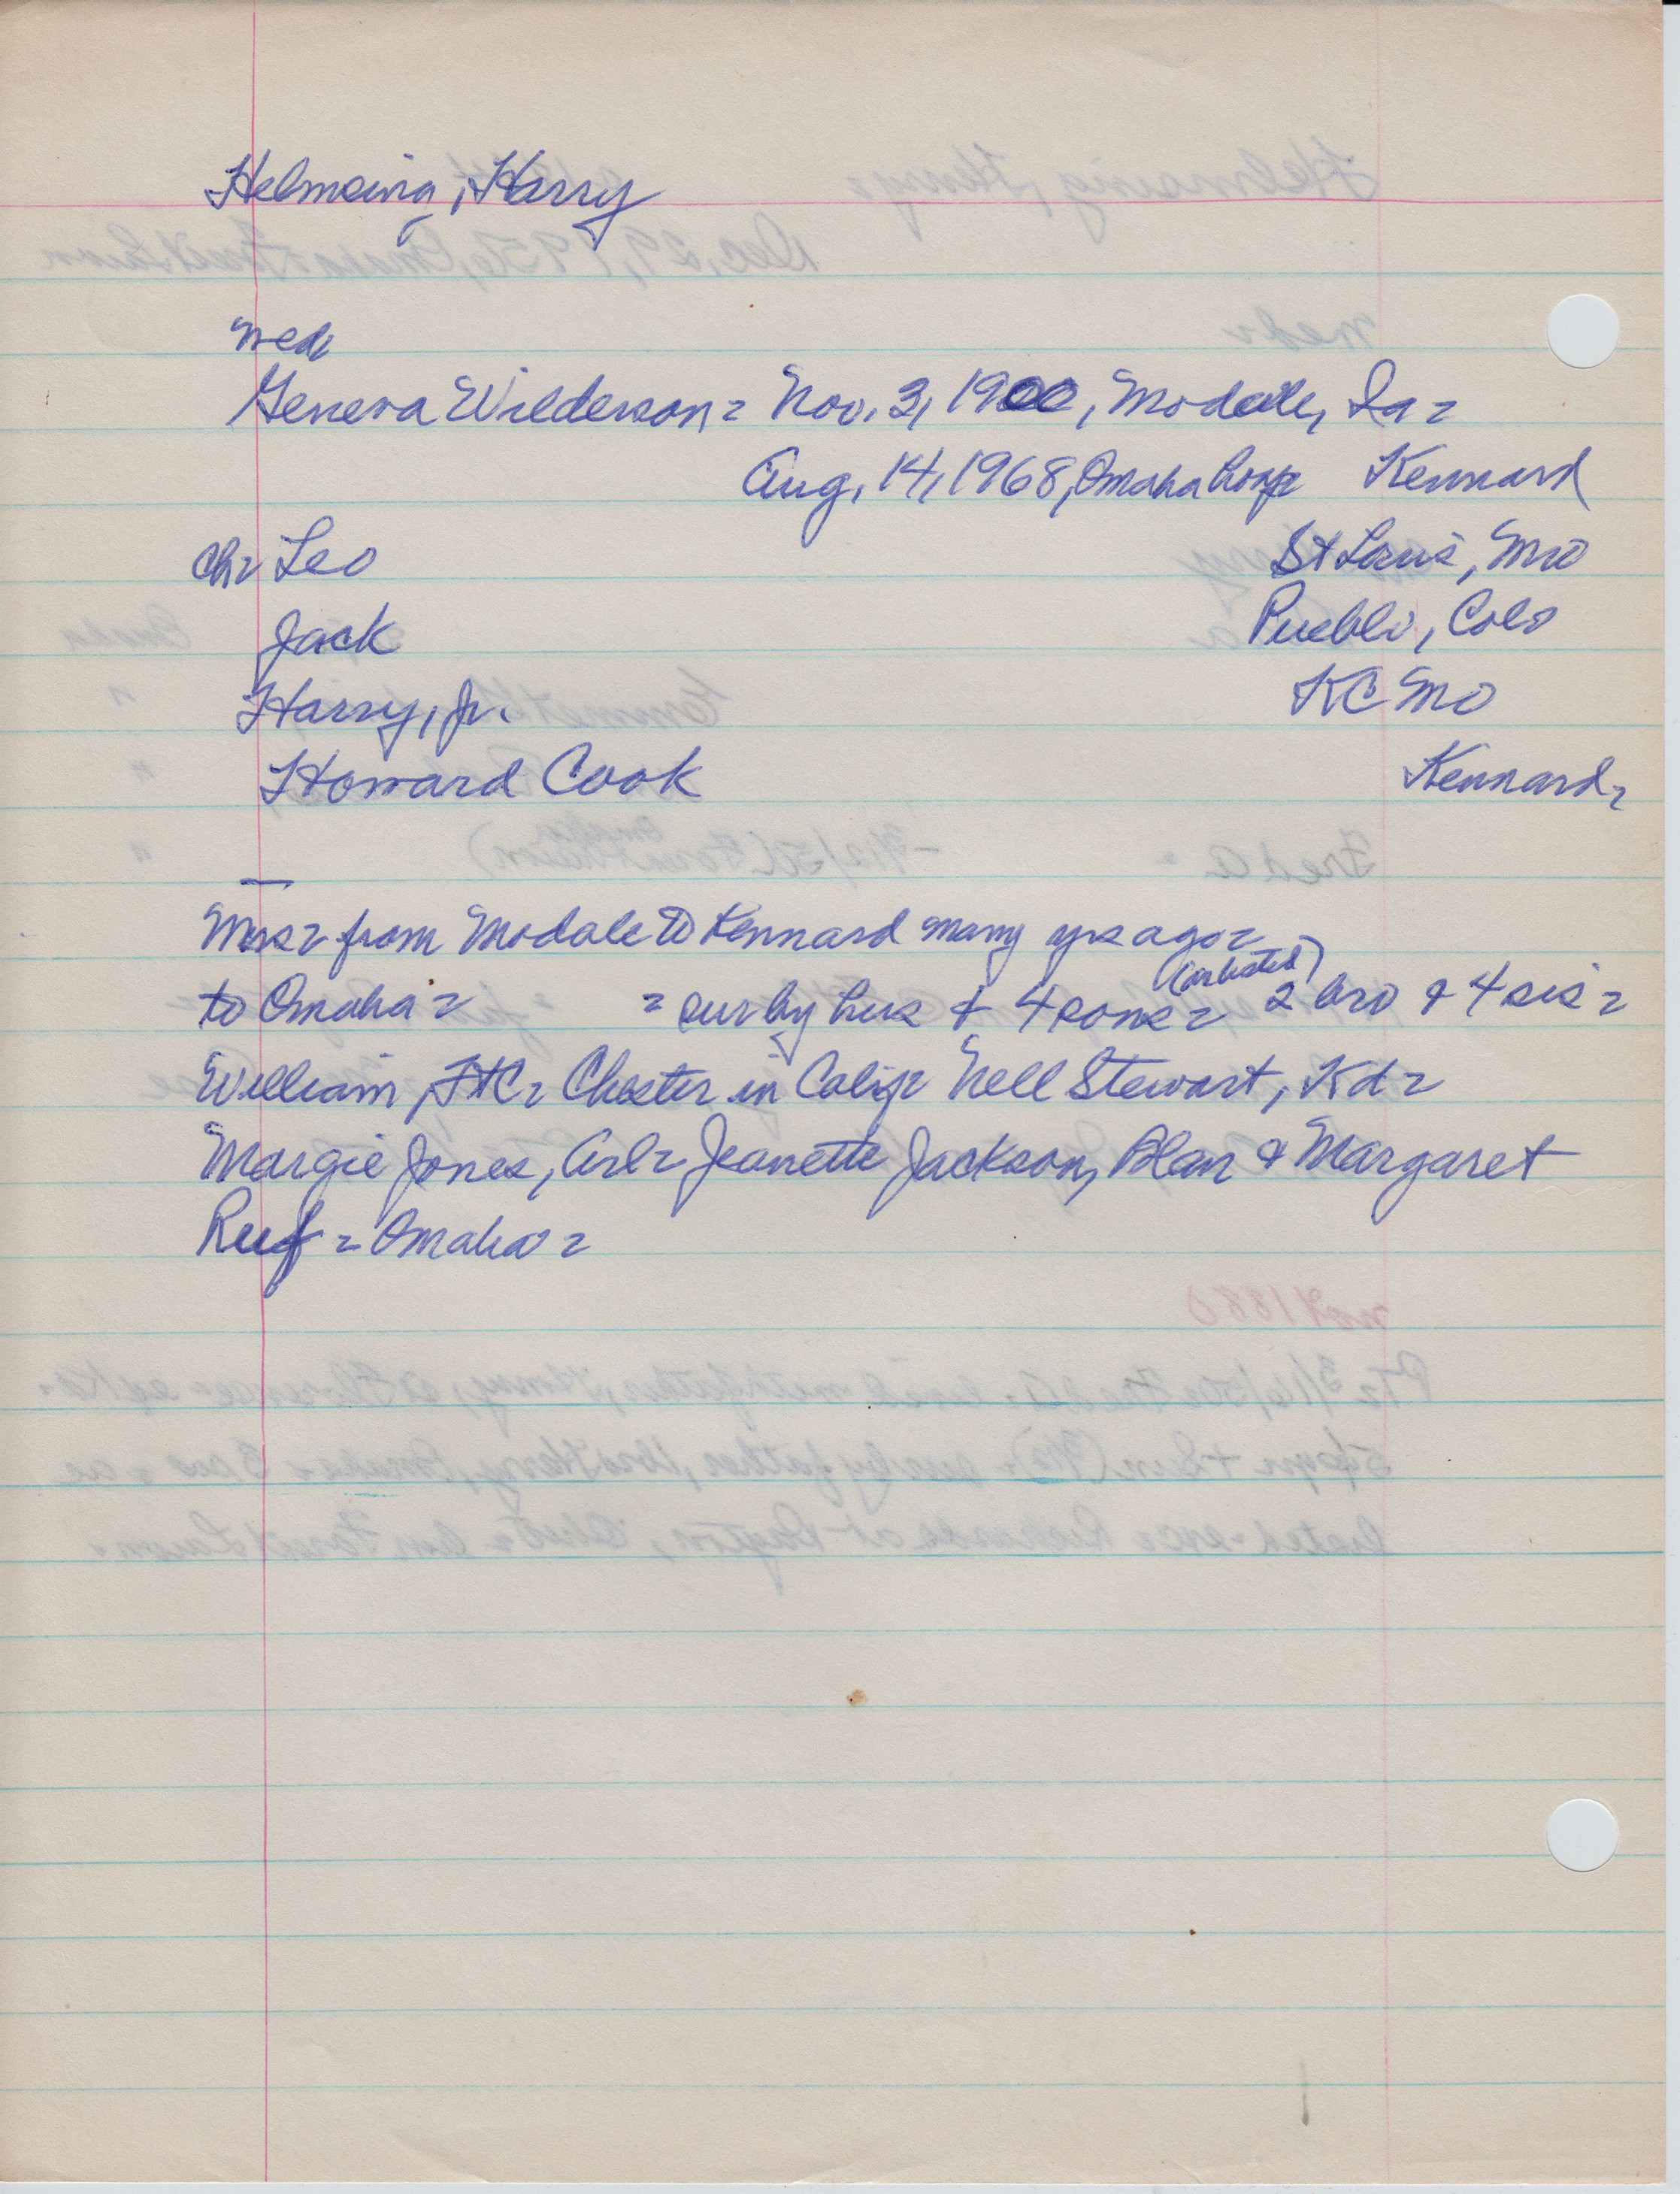 Helmsing, Harry
med
Geneva Wilderson = Nov. 3, 1900, Modale, Ia =
Aug. 14, 1968, Omaha hosp Kennard
Ch = Leo St Louis, Mo
Jack Pueblo, Colo
Harry, Jr. KC Mo
Howard Cook Kennard =
—
Mrs = from Modale to Kennard many yrs ago =
(as listed)
to Omaha = = sur by hus + 4 sons = 2 bro & 4 sis =
William, Ft C = Chester in Calif = Nell Stewart, Kd =
Margie Jones, Arl = Jeanette Jackson, Blair & Margaret
Ruf = Omaha =